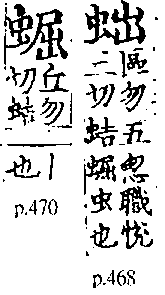 䖦
區勿五忽職悅
二切蛣𧌑虫也
p.468
𧌑
丘勿
切蛣
丨
也
p.470